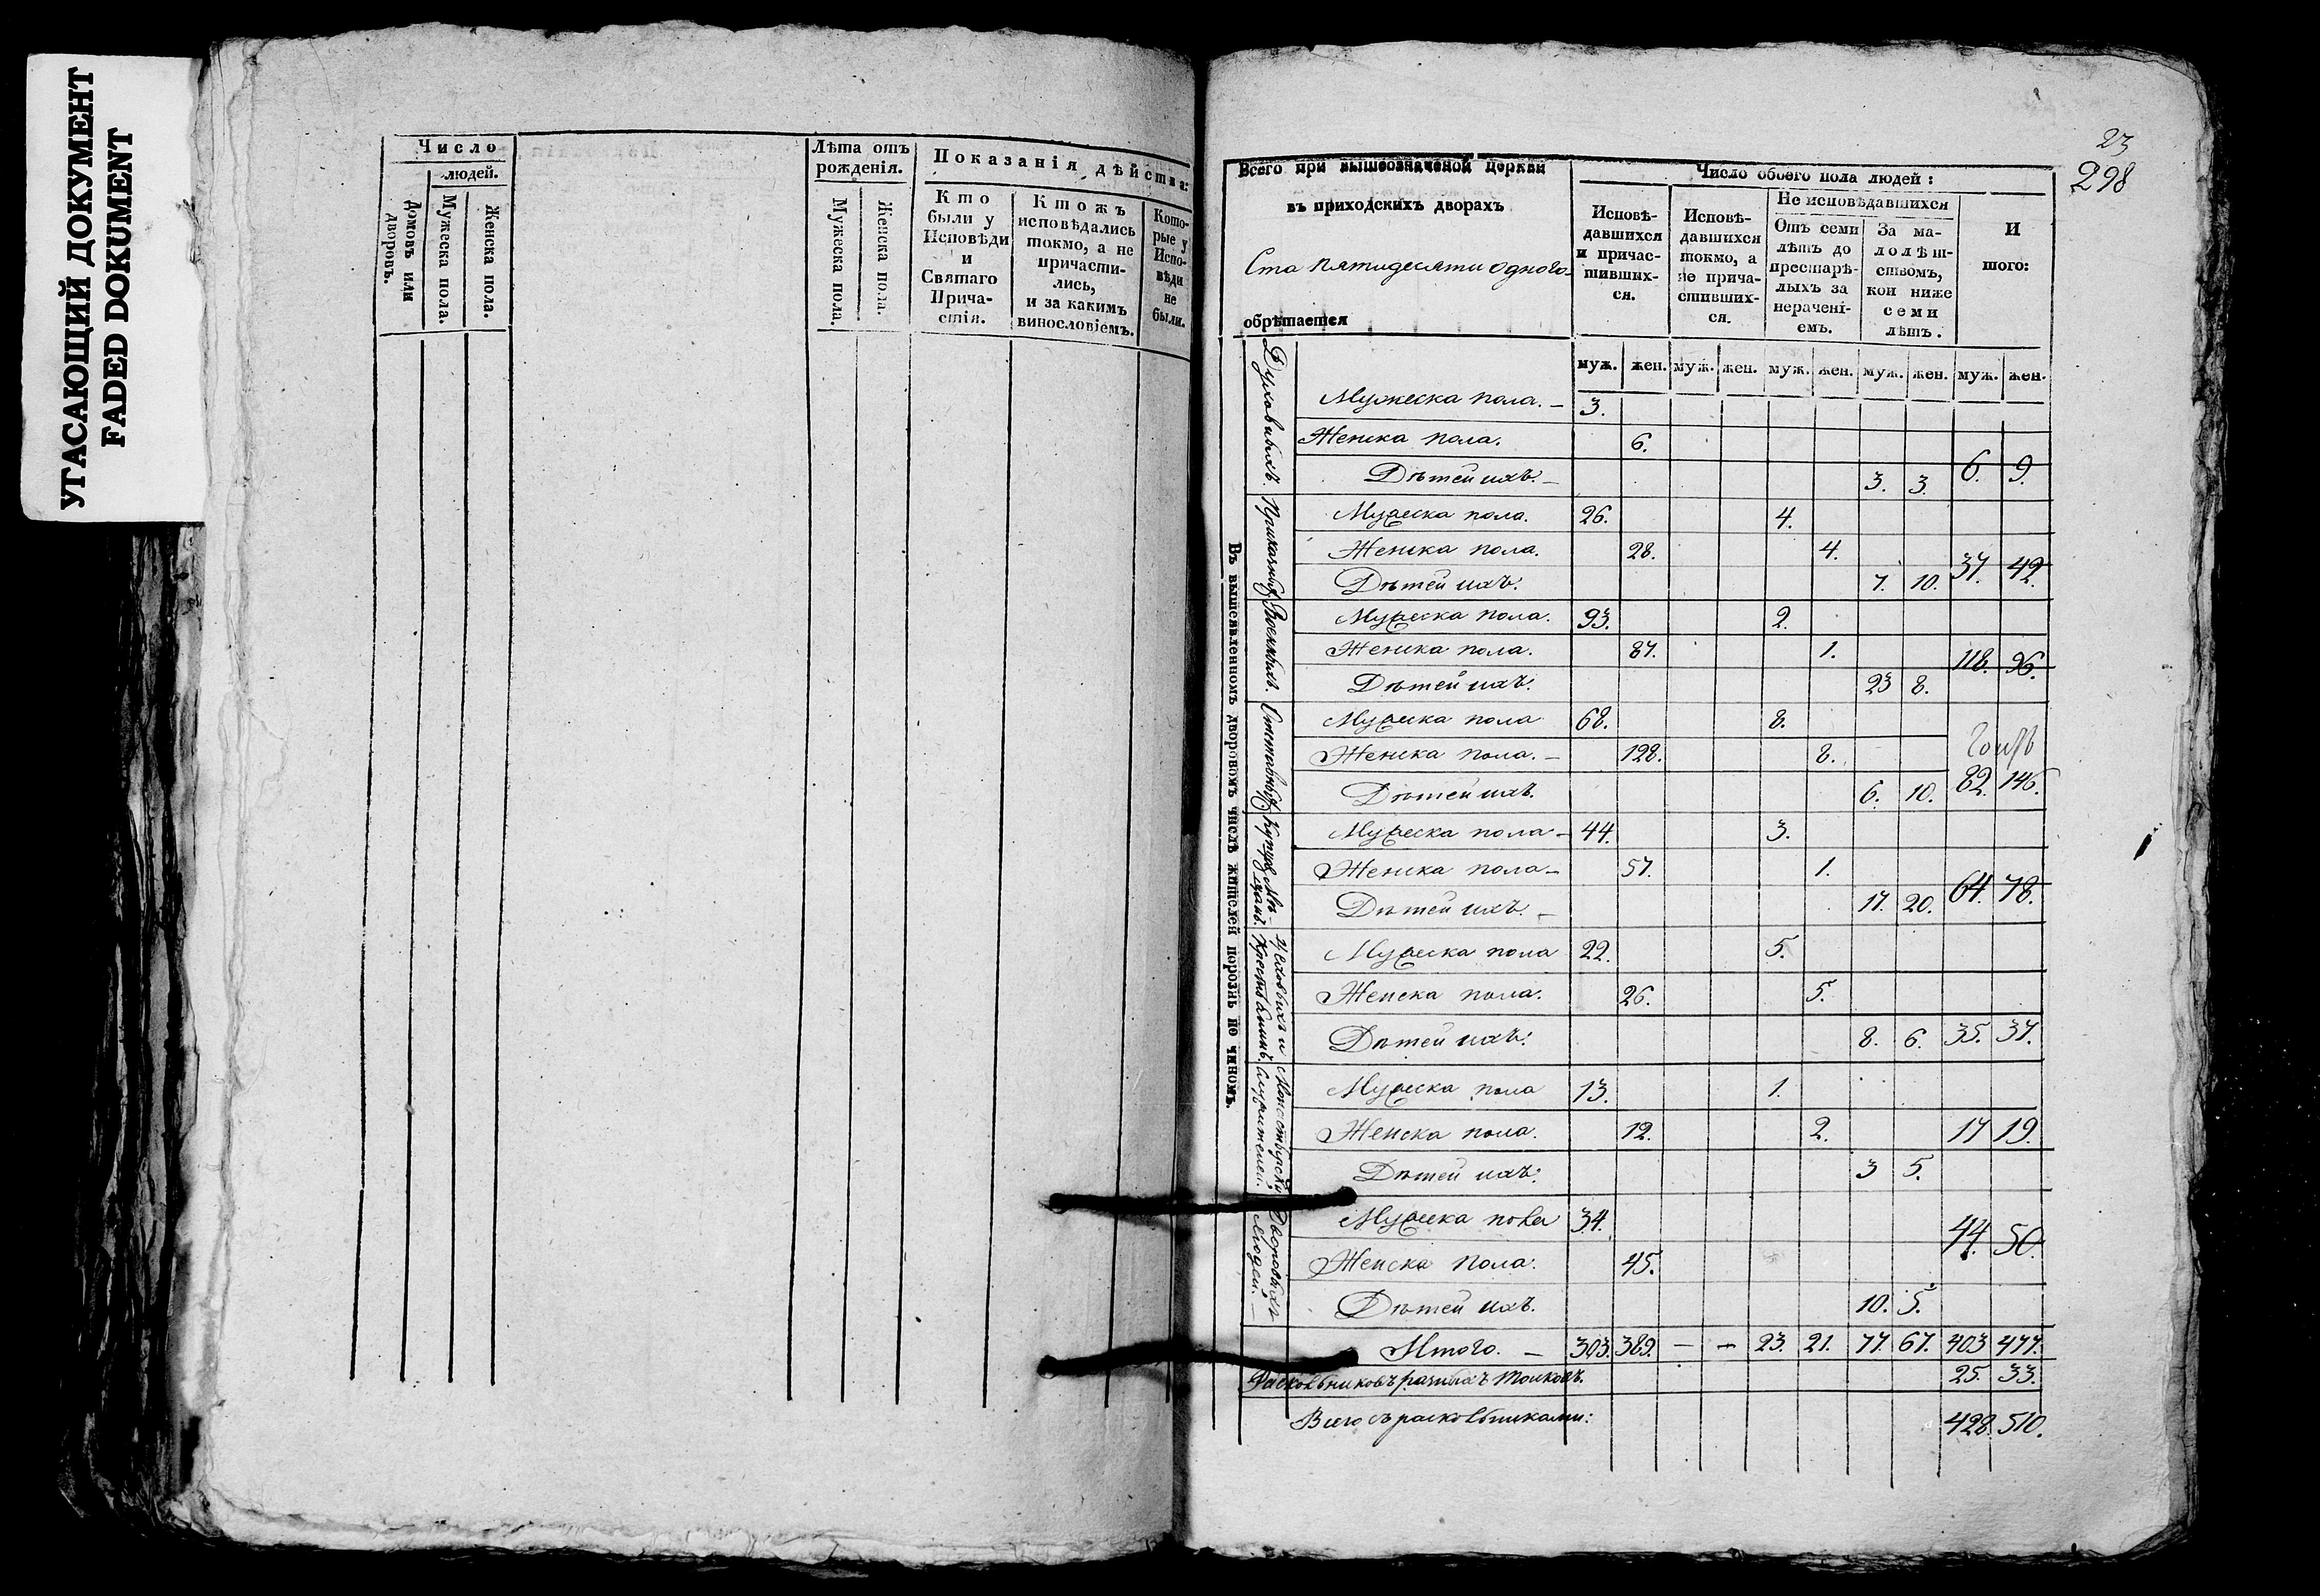 УГАСАЮЩИЙ ДОКУМЕНТ
FADED DOKUMENT
Число
людей.
Домовъ или дворовъ.
Мужеска пола.
Женска пола.
Лѣта отъ рожденія.
Мужеска пола.
Женска пола.
Показанія дѣйства:
Кто были у Исповѣди и Святаго Причастія.
Ктожъ исповѣдались токмо, а не причастились, и за какимъ винословіемъ.
Которые у Исповѣди не были.
23
298
Всего при вышеозначеной церкви
въ приходскихъ дворахъ
Ста пятидесяти одного
обрѣтается
Число обоего пола людей:
Исповѣ-
давшихся
и причас-
тивших-
ся.
Исповѣ-
давшихся
токмо, а
не прича-
стивших-
ся.
Не исповѣдавшихся
Отъ семи
лѣтъ до
престарѣ-
лыхъ за
нерачені-
емъ.
За ма-
лолѣт-
ствомъ,
кои ниже
семи
лѣтъ.
И
того:
муж. жен. муж. жен. муж. жен. муж. жен. муж. жен.
Въ вышеявленномъ дворовомъ числѣ жителей порознь по чиномъ.
Духовныхъ.
Мужеска пола. 3.
Женска пола. 6.
Дѣтей ихъ. 3. 3. 6. 9.
Приказных
Мужеска пола. 26. 4.
Женска пола. 28. 4.
Дѣтей ихъ. 7. 10. 37. 42.
Военныхъ.
Мужеска пола. 93. 2.
Женска пола. 87. 1.
Дѣтей ихъ. 23 8. 118. 96.
Отставных
Мужеска пола 68. 8.
Женска пола. 128. 8.
Дѣтей ихъ. 6. 10. 82. 146.
Купцов Мѣщанъ.
Мужеска пола 44. 3.
Женска пола 57. 1.
Дѣтей ихъ. 17. 20. 64. 78.
Цеховыхъ и Крестьянъ.
Мужеска пола 22. 5.
Женска пола. 26. 5.
Дѣтей ихъ. 8. 6. 35. 37.
Монастырски служителей.
Мужеска пола 13. 1.
Женска пола. 12. 2. 17 19.
Дѣтей ихъ. 3 5.
Дворовыхъ людей.
Мужеска пола 34. 44. 50.
Женска пола. 45.
Дѣтей ихъ. 10. 5.
Итого. 303. 389. — — 23. 21. 77. 67. 403 477.
Раскольниковъ разныхъ толковъ. 25. 33.
Всего съ раскольниками: 428. 510.